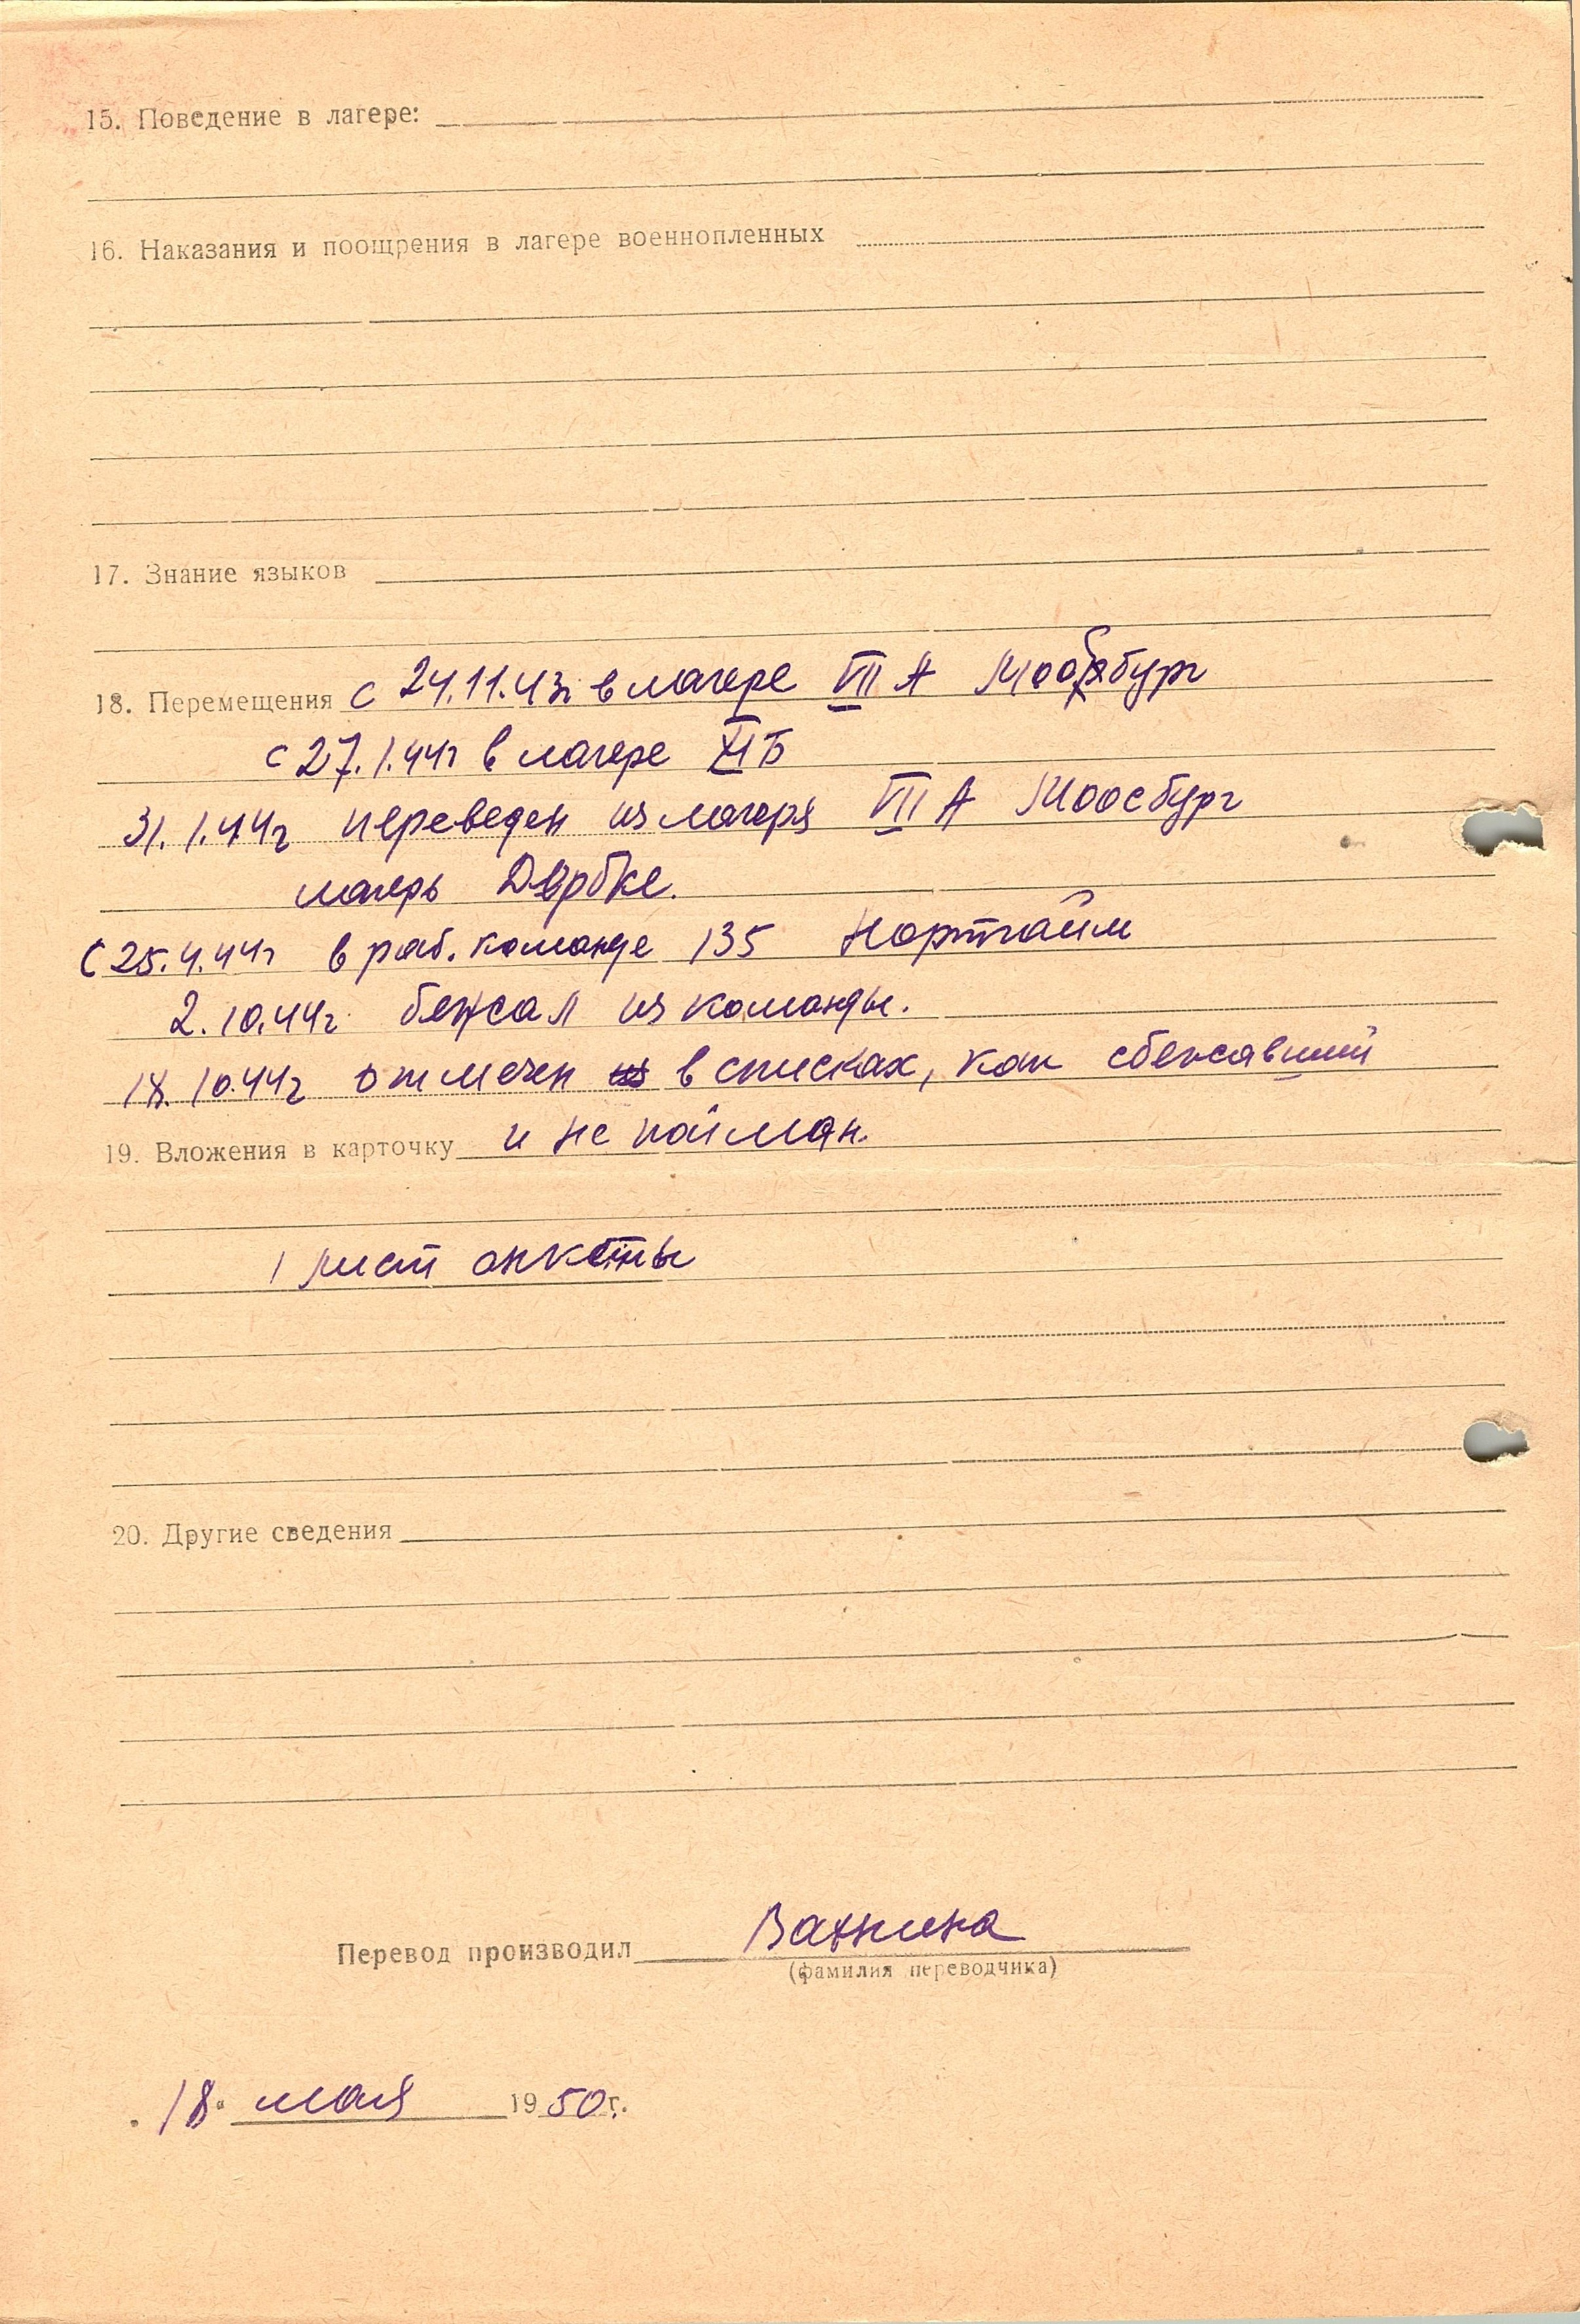 15. Поведение в лагере:
16. Наказания и поощрения в лагере военнопленных
17. Знание языков
18. Перемещения с 24.11.43г в лагере VII А Моосбург
с 27.1.44г в лагере XI Б
31.1.44г переведен из лагеря VII А Моосбург
лагерь Дёрбке.
С 25.4.44г в раб. команде 135 Нортгайм
2.10.44г бежал из команды.
18.10.44г отмечен в списках, как сбежавший
и не пойман.
19. Вложения в карточку
1 лист анкеты
20. Другие сведения
Перевод производил
(фамилия переводчика)
18 мая 1950г.